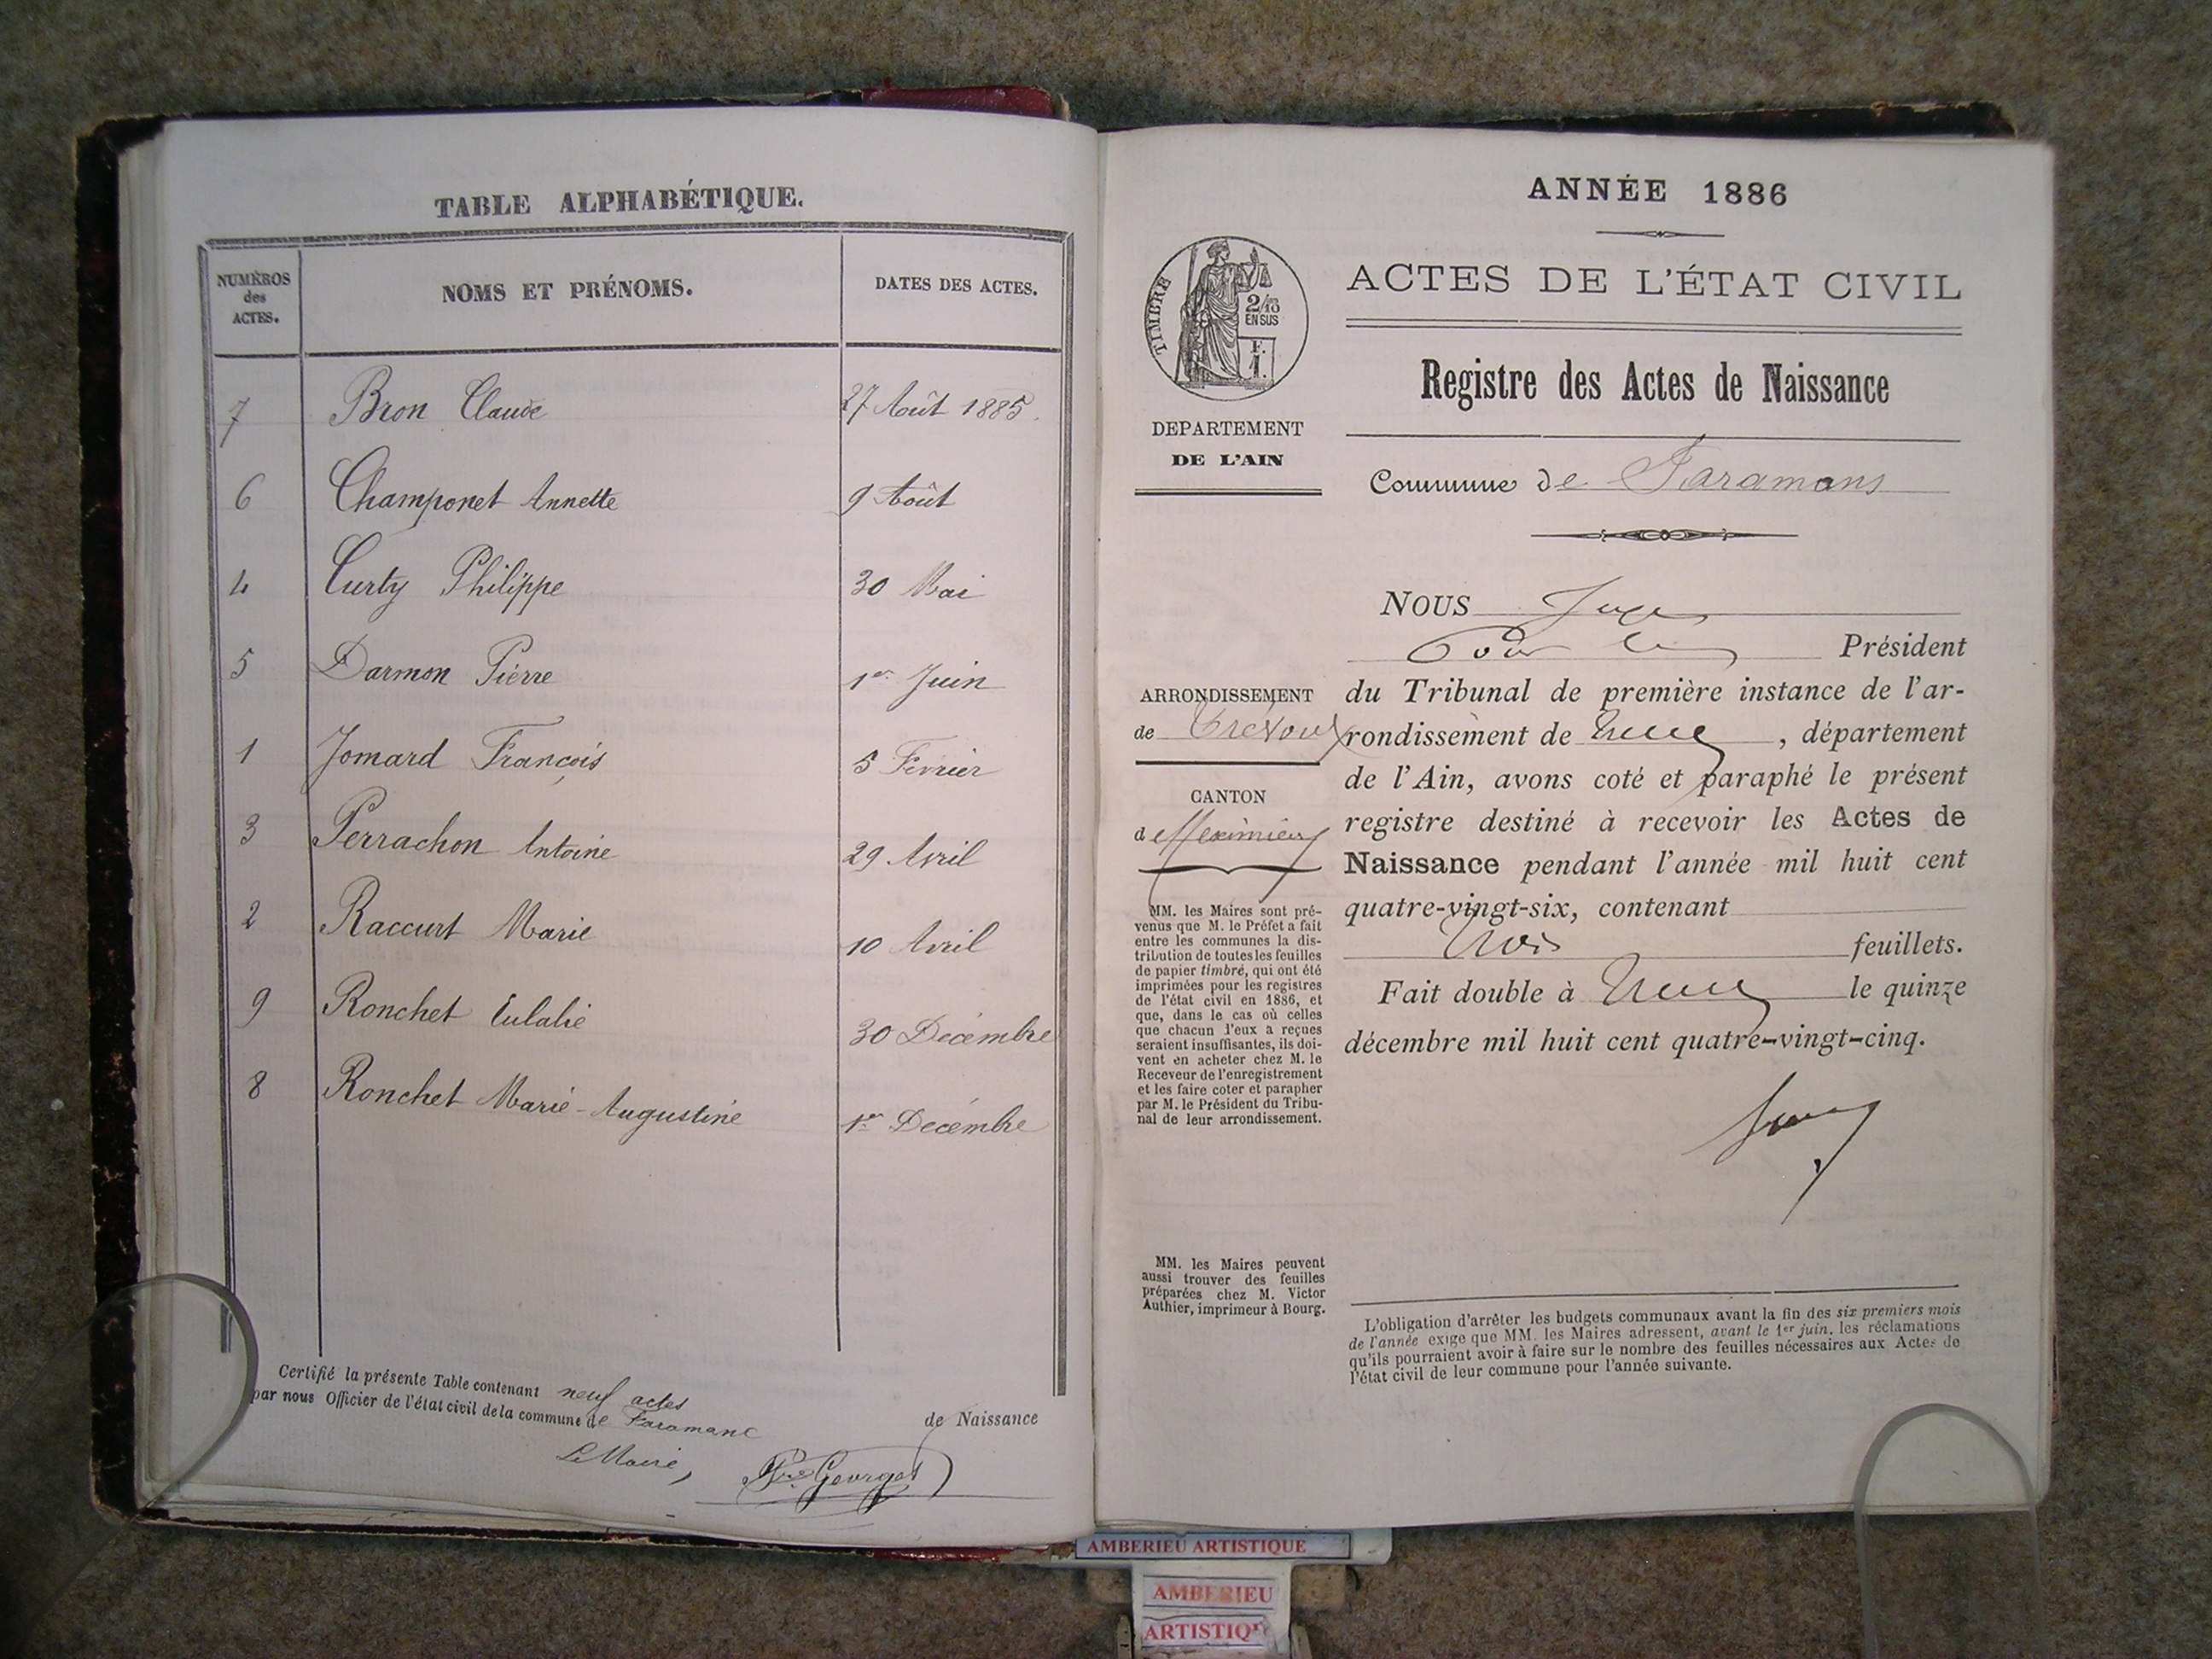 TABLE ALPHABÉTIQUE.
NUMÉROS
des
ACTES.
NOMS ET PRÉNOMS.
DATES DES ACTES.
7 Bron Claude 27 Août 1885.
6 Champonet Annette 9 Août
4 Curty Philippe 30 Mai
5 Darmon Pierre 1er Juin
1 Jomard François 5 Février
3 Perrachon Antoine 29 Avril
2 Raccurt Marie 10 Avril
9 Ronchet Eulalie 30 Décembre
8 Ronchet Marie-Augustine 1er Décembre
Certifié la présente Table contenant neuf actes de Naissance
par nous Officier de l'état civil de la commune de Faramans
Le Maire,
Georges
ANNÉE 1886
ACTES DE L'ÉTAT CIVIL
TIMBRE
2/10
EN SUS
F.
1.
Registre des Actes de Naissance
DEPARTEMENT
DE L'AIN
Commune de Faramans
NOUS Juge
Pour le Président
ARRONDISSEMENT
de Trévoux
CANTON
de Meximieux
du Tribunal de première instance de l'ar-
rondissement de , département
de l'Ain, avons coté et paraphé le présent
registre destiné à recevoir les Actes de
Naissance pendant l'année mil huit cent
quatre-vingt-six, contenant
trois feuillets.
Fait double à le quinze
décembre mil huit cent quatre-vingt-cinq.
MM. les Maires sont pré-
venus que M. le Préfet a fait
entre les communes la dis-
tribution de toutes les feuilles
de papier timbré, qui ont été
imprimées pour les registres
de l'état civil en 1886, et
que, dans le cas où celles
que chacun d'eux a reçues
seraient insuffisantes, ils doi-
vent en acheter chez M. le
Receveur de l'enregistrement
et les faire coter et parapher
par M. le Président du Tribu-
nal de leur arrondissement.
MM. les Maires peuvent
aussi trouver des feuilles
préparées chez M. Victor
Authier, imprimeur à Bourg.
L'obligation d'arrêter les budgets communaux avant la fin des six premiers mois
de l'année exige que MM. les Maires adressent, avant le 1er juin, les réclamations
qu'ils pourraient avoir à faire sur le nombre des feuilles nécessaires aux Actes de
l'état civil de leur commune pour l'année suivante.
AMBERIEU ARTISTIQUE
AMBERIEU
ARTISTIQUE